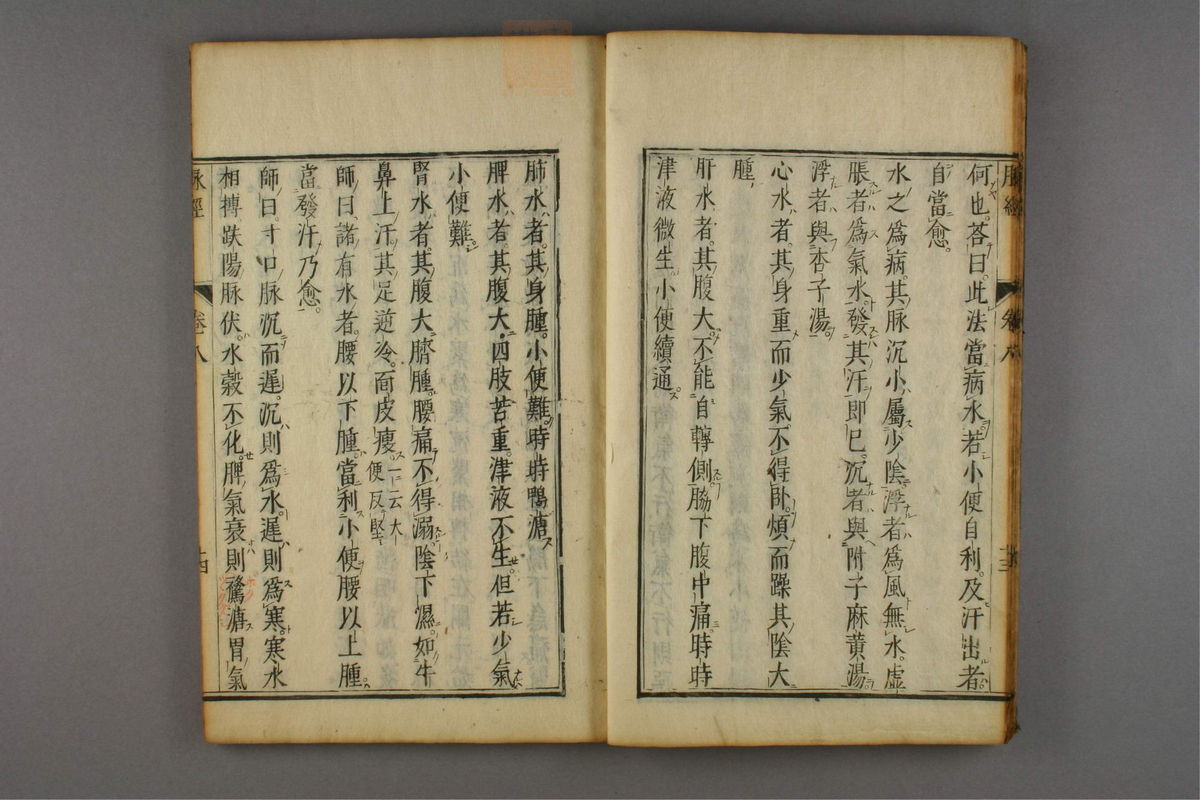 脉經 卷八 十三
何也。荅曰。此法當病水。若小便自利。及汗出者。
自當愈。
水之爲病。其脉沉小。屬少陰。浮者爲風。無水。虚
脹者。爲氣水。發其汗即已。沉者與附子麻黄湯。
浮者與杏子湯。
心水者。其身重而少氣。不得臥。煩而躁。其陰大
腫。
肝水者。其腹大。不能自轉側。脇下腹中痛。時時
津液微生。小便續通。
肺水者。其身腫。小便難。時時鴨溏。
脾水者。其腹大。四肢苦重。津液不生。但若少氣
小便難。
腎水者。其腹大。臍腫。腰痛。不得溺。陰下濕。如牛
鼻上汗。其足逆冷。面皮瘦。一云大便反堅
師曰。諸有水者。腰以下腫。當利小便。腰以上腫。
當發汗乃愈。
師曰。寸口脉沉而遲。沉則爲水。遲則爲寒。寒水
相摶。趺陽脉伏。水穀不化。脾氣衰則鶩溏。胃氣
脉經 卷八 十四